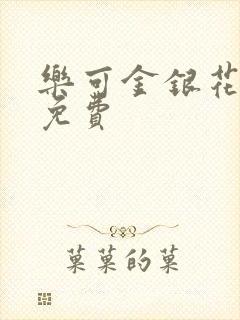 樂可金銀花
免費
菓菓的菓